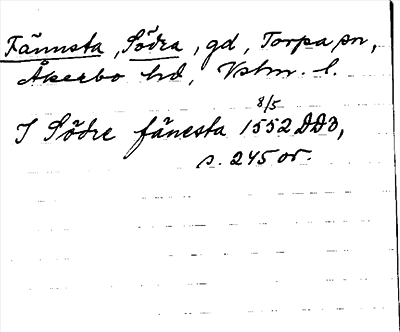 Fännsta, Södra, gd, Torpa sn,
Åkerbo hd, Vstm. l.
8/5
I Södre fänesta 1552 DD3,
s. 245 or.